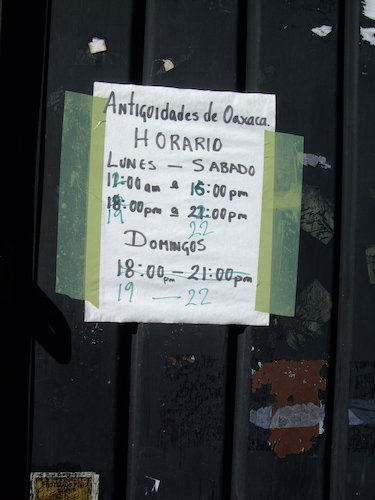 Antigüidades de Oaxaca.
HORARIO
LUNES — SABADO
12:00 am a 16:00 pm
18:00 pm a 21:00 pm
19 22
DOMINGOS
18:00 pm — 21:00 pm
19 — 22